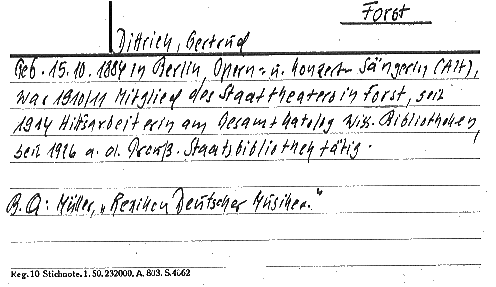 Forst
Dittrich, Gertrud
Geb. 15.10.1884 in Berlin, Opern- u. Konzert-Sängerin (Alt),
war 1910/11 Mitglied des Stadttheaters in Forst, seit
1914 Hilfsarbeiterin am Gesamtkatalog wiss. Bibliotheken,
seit 1926 a. d. Preuß. Staatsbibliothek tätig.
B.Q: Müller, „Lexikon Deutscher Musiker."
Reg. 10 Stichnote. 1. 50. 232000. A. 803. S. 4662